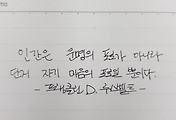 인간은 운명의 포로가 아니라
단지 자기 마음의 포로일 뿐이다.
- 프랭클린 D. 루스벨트 -